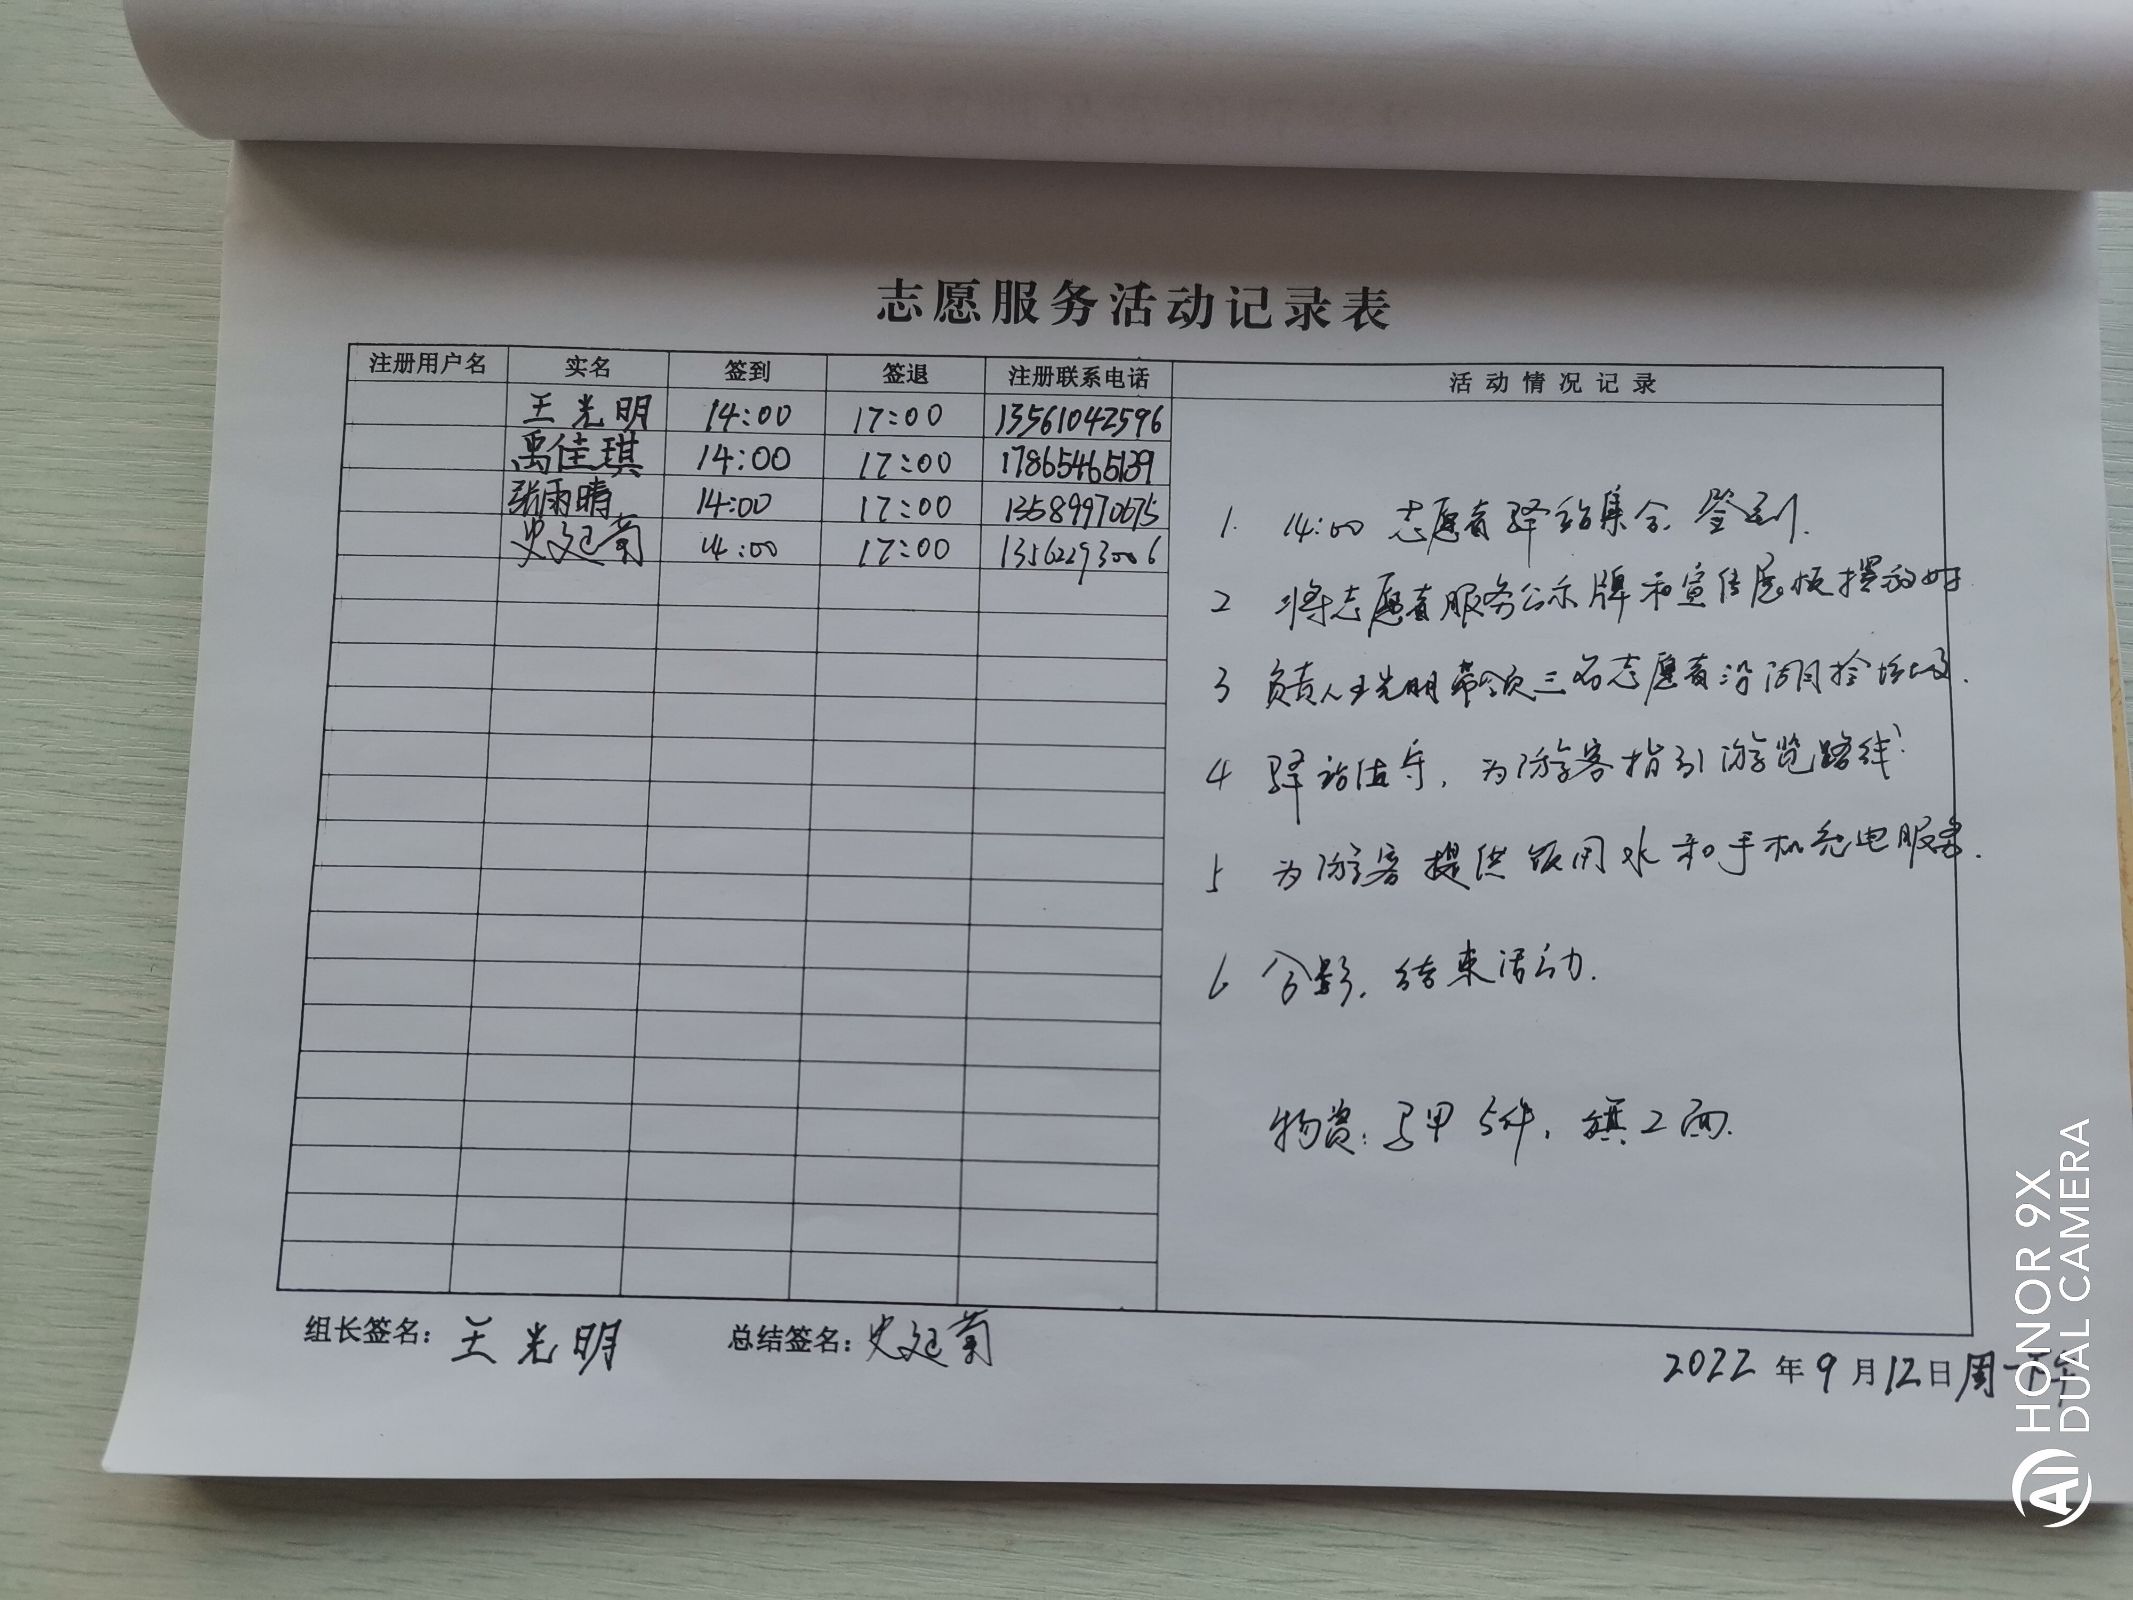 志愿服务活动记录表
注册用户名 实名 签到 签退 注册联系电话 活动情况记录
王光明 14:00 17:00 13561042596
禹佳琪 14:00 17:00 17865465139
张雨晴 14:00 17:00 13589970675
史廷菊 14:00 17:00 13562293006
1. 14:00 志愿者驿站集合、签到.
2 将志愿者服务公示牌和宣传展板摆放好
3 负责人王光明带领三名志愿者沿湖捡垃圾.
4 驿站值守,为游客指引游览路线.
5 为游客提供饮用水和手机充电服务.
6 合影,结束活动.
物资:马甲5件,旗2面.
组长签名:王光明 总结签名:史廷菊
2022年9月12日周一下午
HONOR 9X
DUAL CAMERA
AI